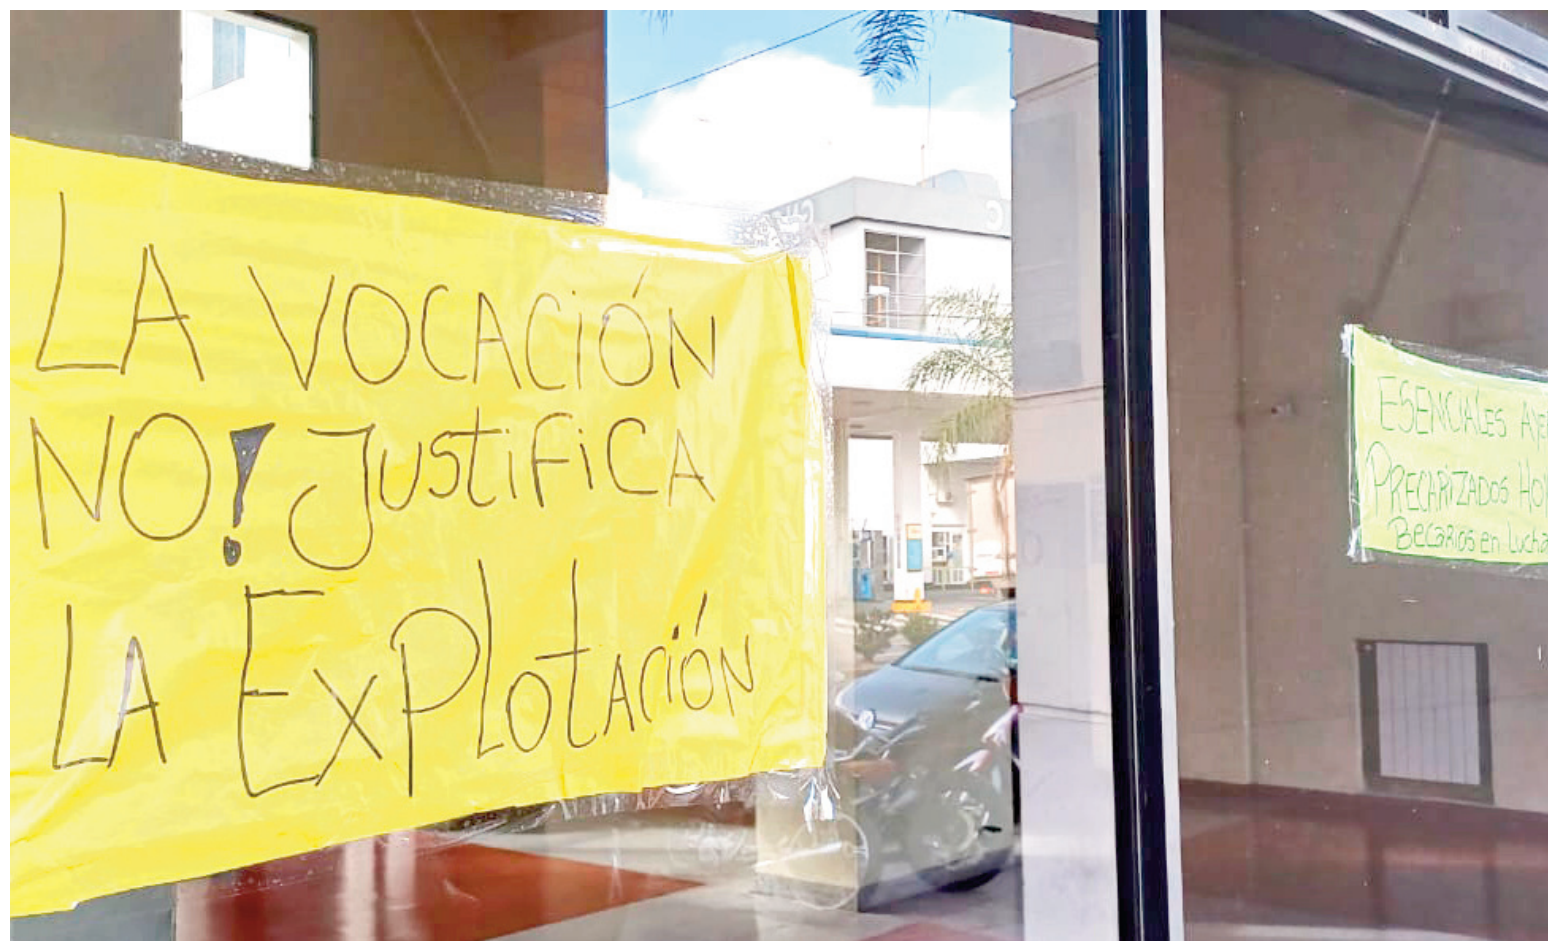 LA VOCACIÓN
NO! JUSTIFICA
LA EXPLOTACIÓN
ESENCIALES
PRECARIZADOS HOY
Becarios en Lucha